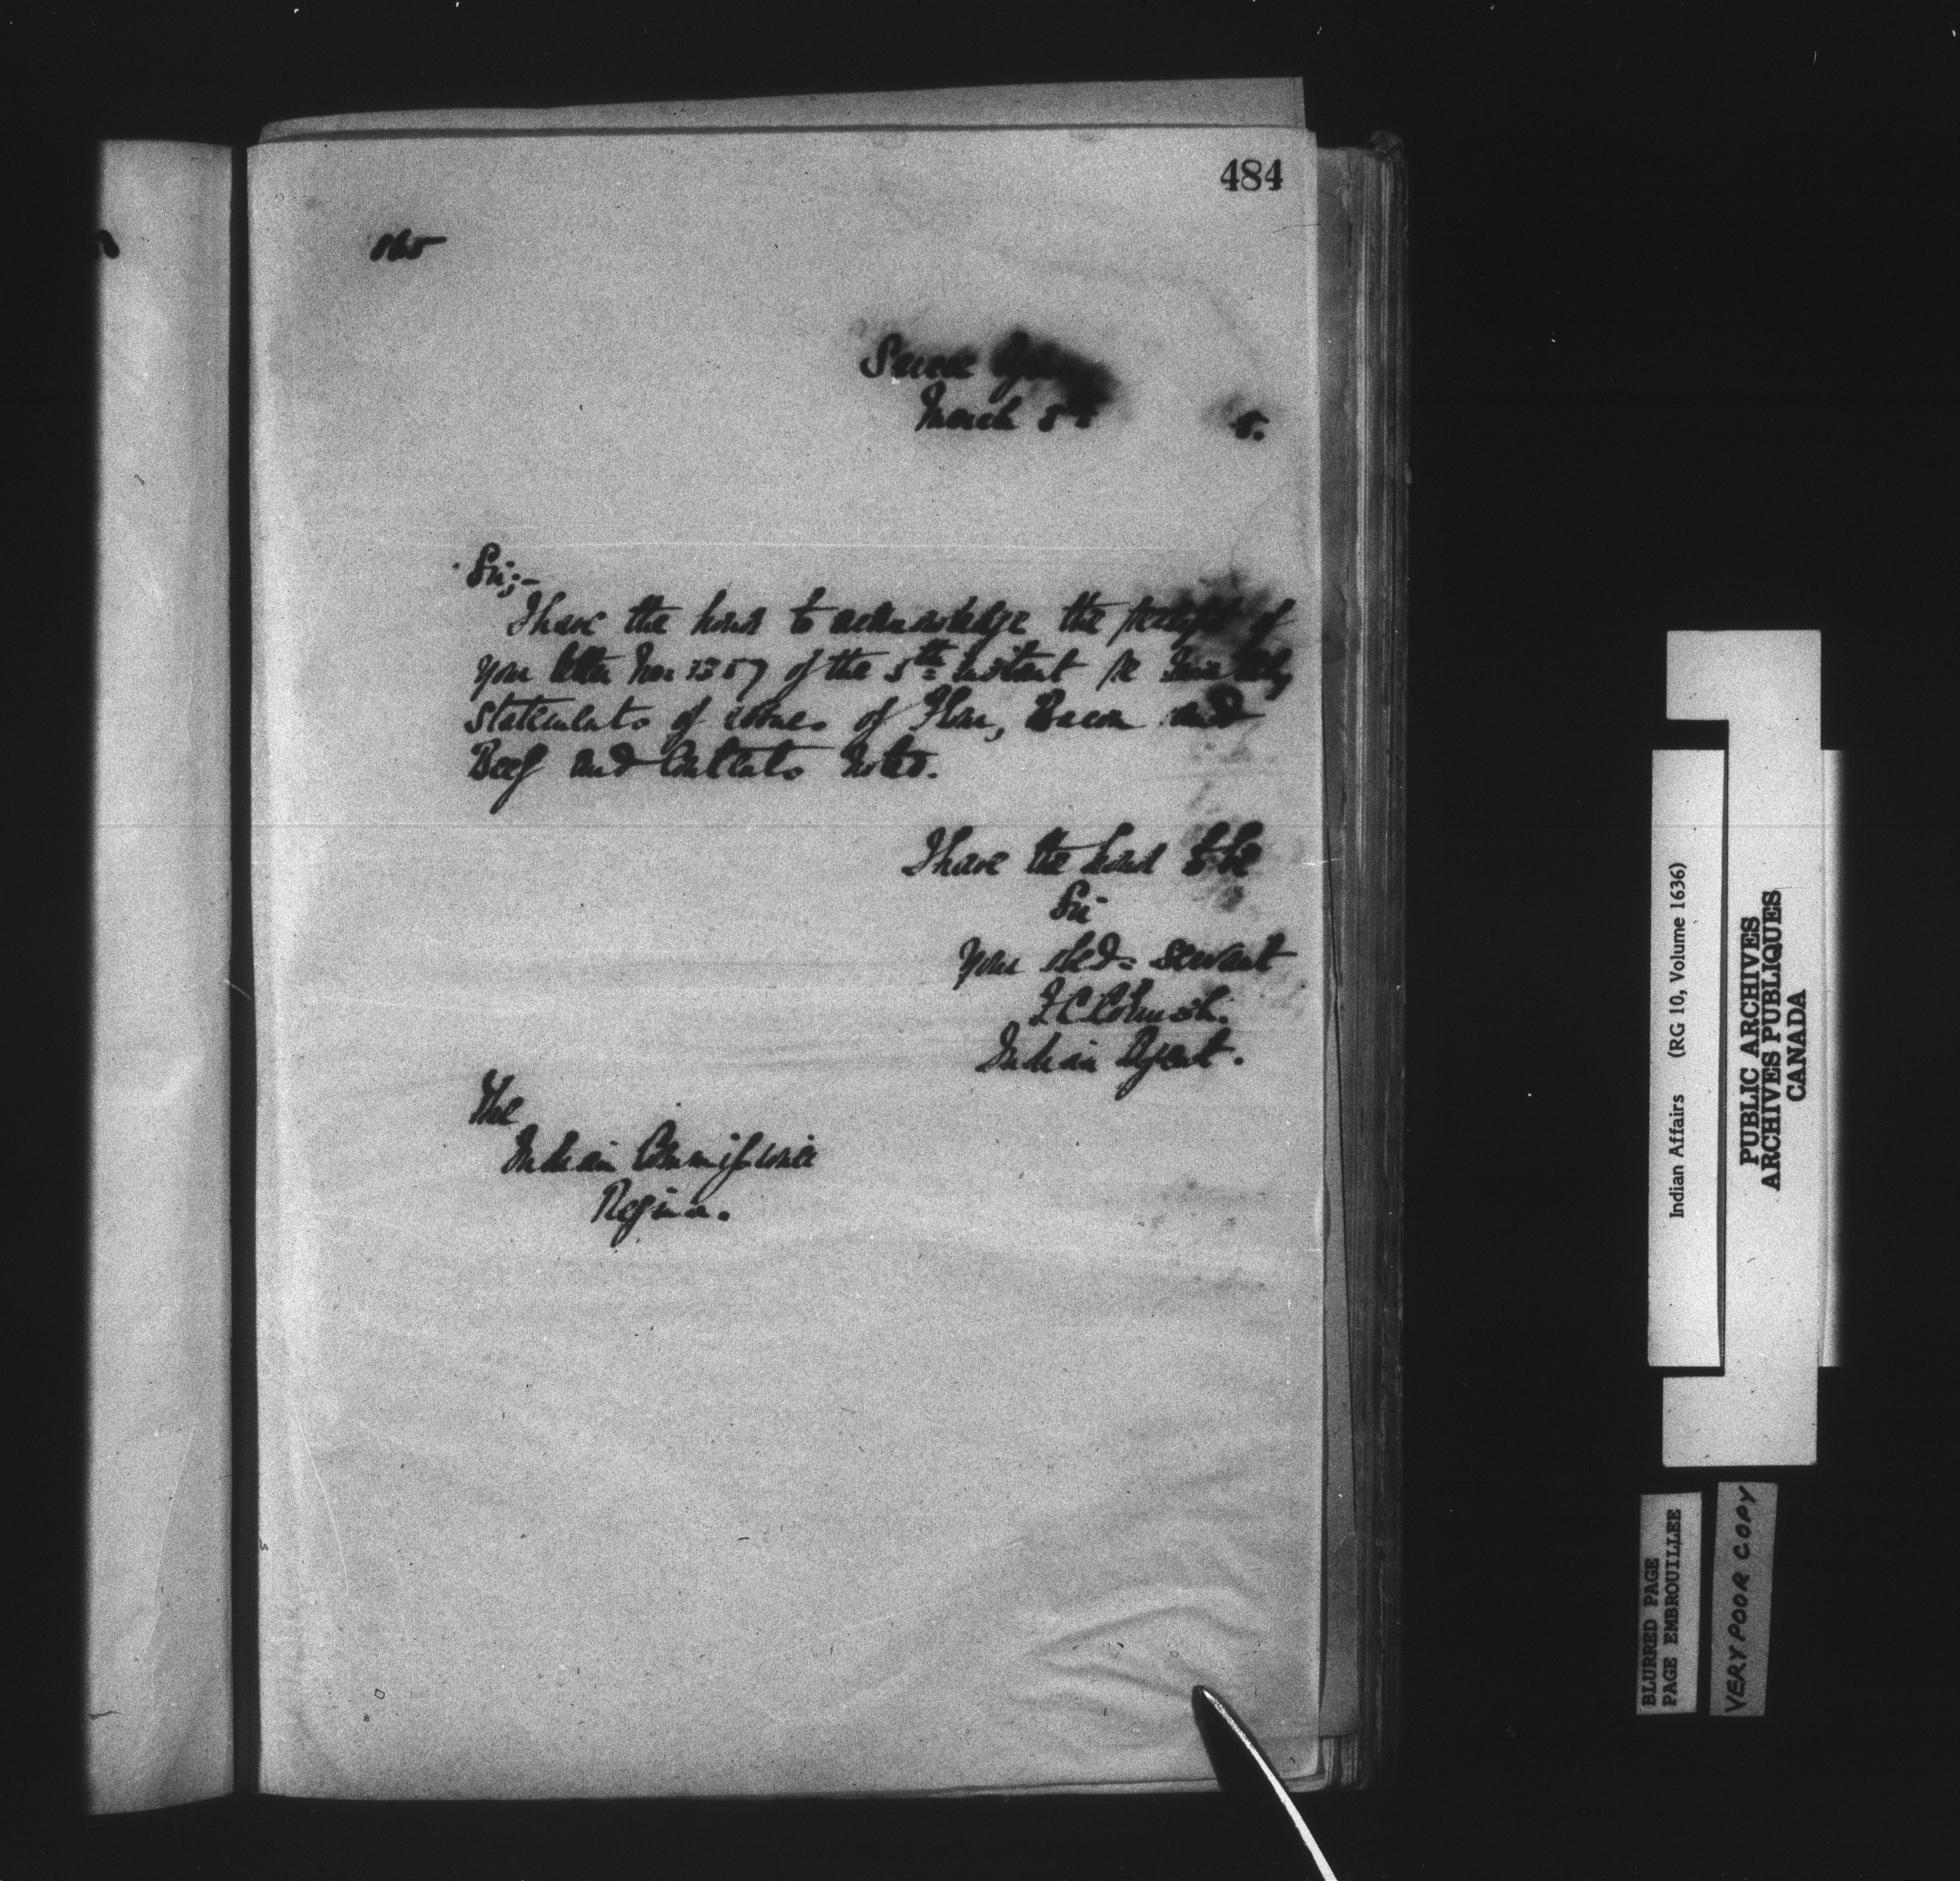 484
865
Agency
March 5
5.
Sir;-
I have the honor to acknowledge the receipt of
your letter No. 1357 of the 5th instant re
statements of issues of Flour, Bacon and
Beef and Contents noted.
I have the honor to be
Sir
Your obed= servant
Indian Agent.
The
Indian Commissioner
Regina.
Indian Affairs (RG 10, Volume 1636)
PUBLIC ARCHIVES
ARCHIVES PUBLIQUES
CANADA
BLURRED PAGE
PAGE EMBROUILLEE
VERY POOR COPY